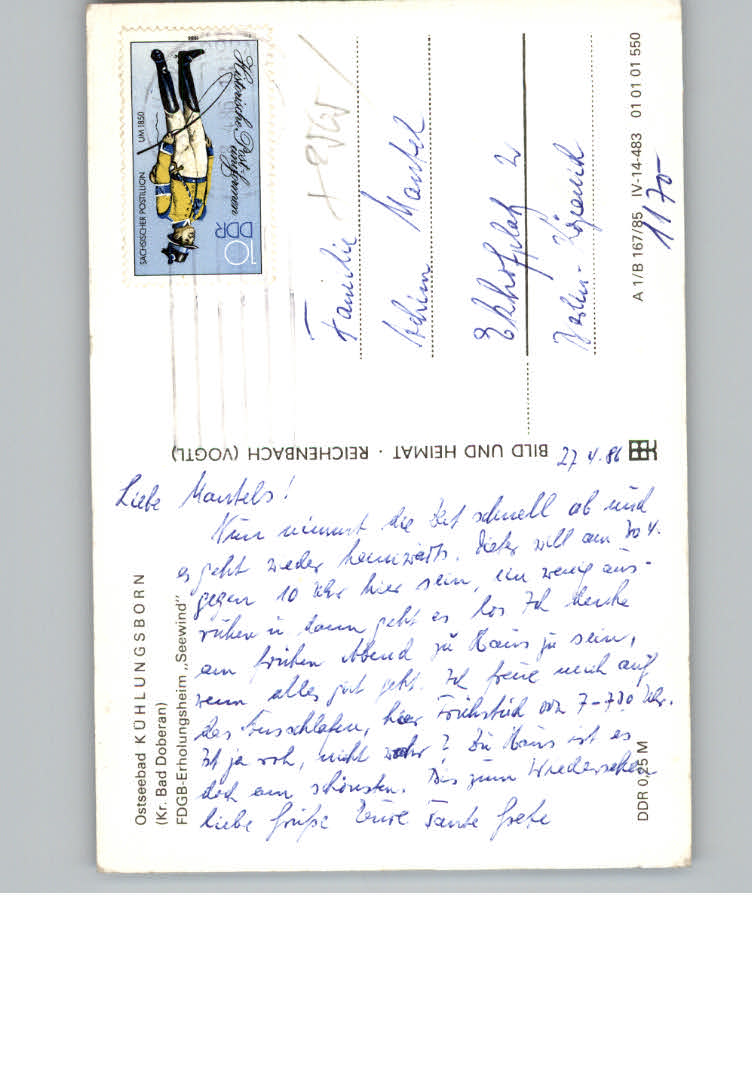 Ostseebad KÜHLUNGSBORN
(Kr. Bad Doberan)
FDGB-Erholungsheim „Seewind"
27 4. 86
Liebe Mantels!
Nun nimmt die Zeit schnell ab und
es geht wieder heimwärts. Dieter will am 30 4.
gegen 10 Uhr hier sein, ein wenig aus-
ruhen u dann geht es los Ich denke
am frühen Abend zu Haus zu sein,
wenn alles gut geht. Ich freue mich auf
das Ausschlafen, hier Frühstück von 7-730 Uhr.
Ist ja roh, nicht wahr? Zu Haus ist es
doch am schönsten. Bis zum Wiedersehen
liebe Grüße Eure Tante Grete
DDR 0,25 M
BILD UND HEIMAT · REICHENBACH (VOGTL)
Historische Post-
uniformen
SÄCHSISCHER POSTILLION UM 1850
DDR
10
1986
Familie
Achim Mantel
Ekhofplatz 2
Berlin-Köpenick
1170
A 1/B 167/85 IV-14-483 01 01 01 550